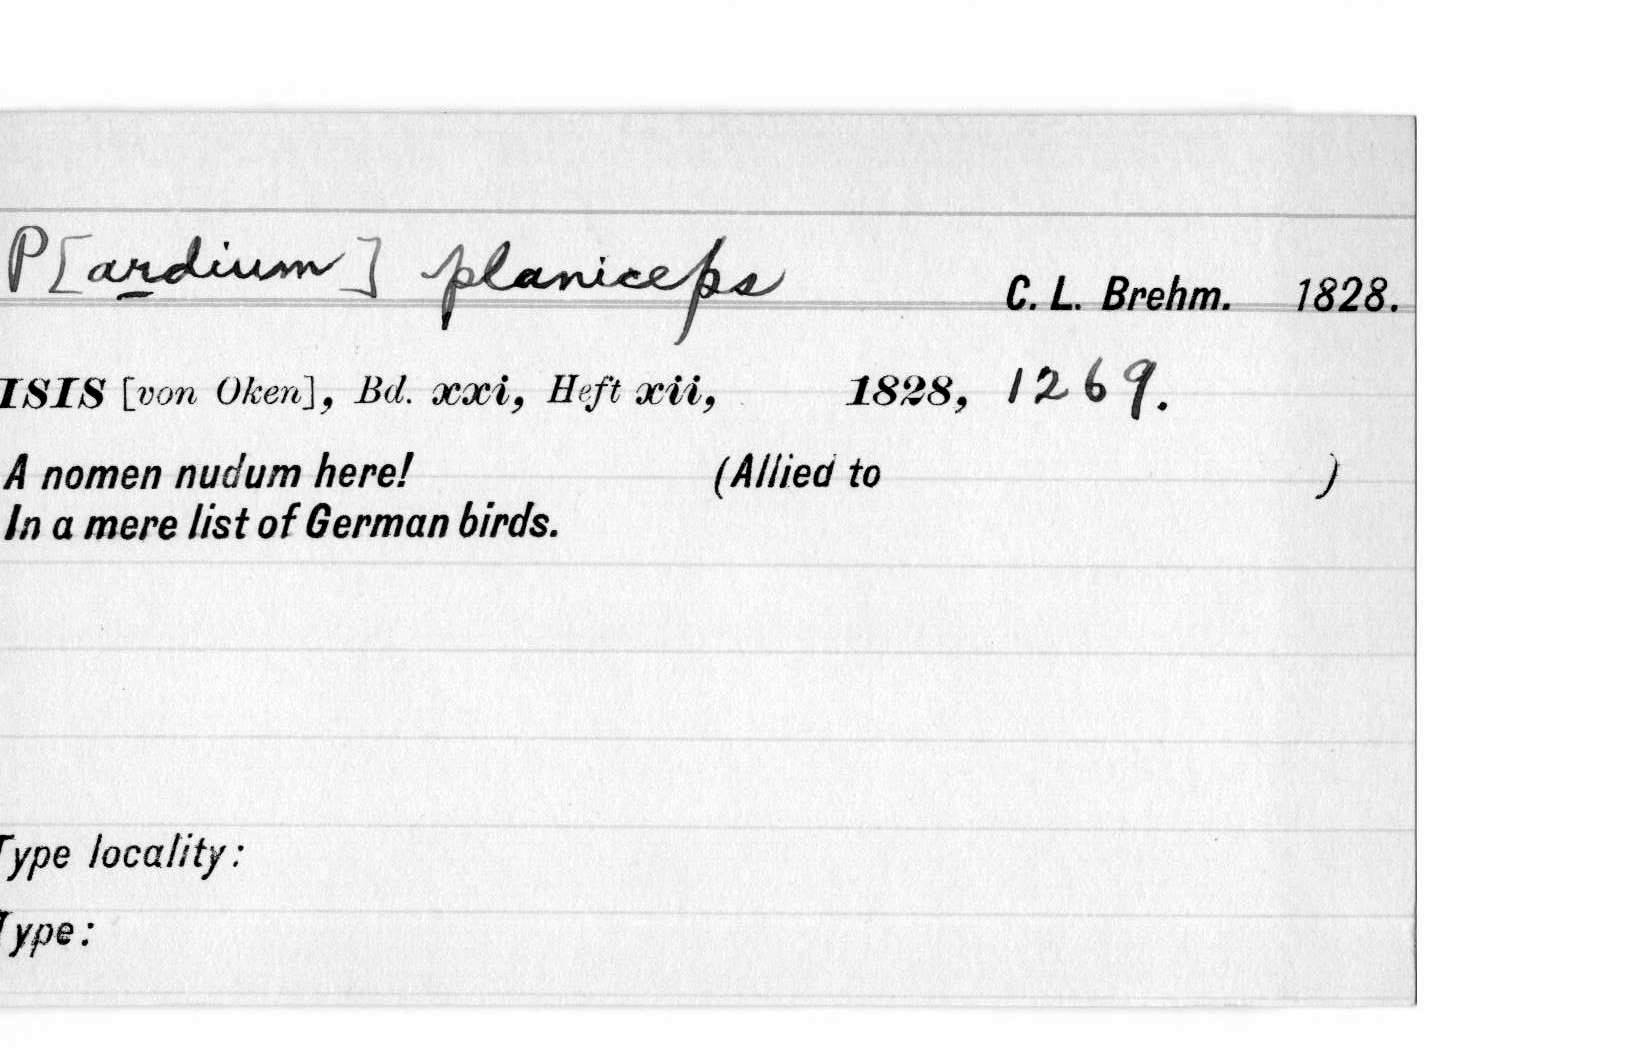 P[ardium] planiceps C. L. Brehm. 1828.
ISIS [von Oken], Bd. xxi, Heft xii, 1828, 1269.
A nomen nudum here! (Allied to )
In a mere list of German birds.
Type locality:
Type: